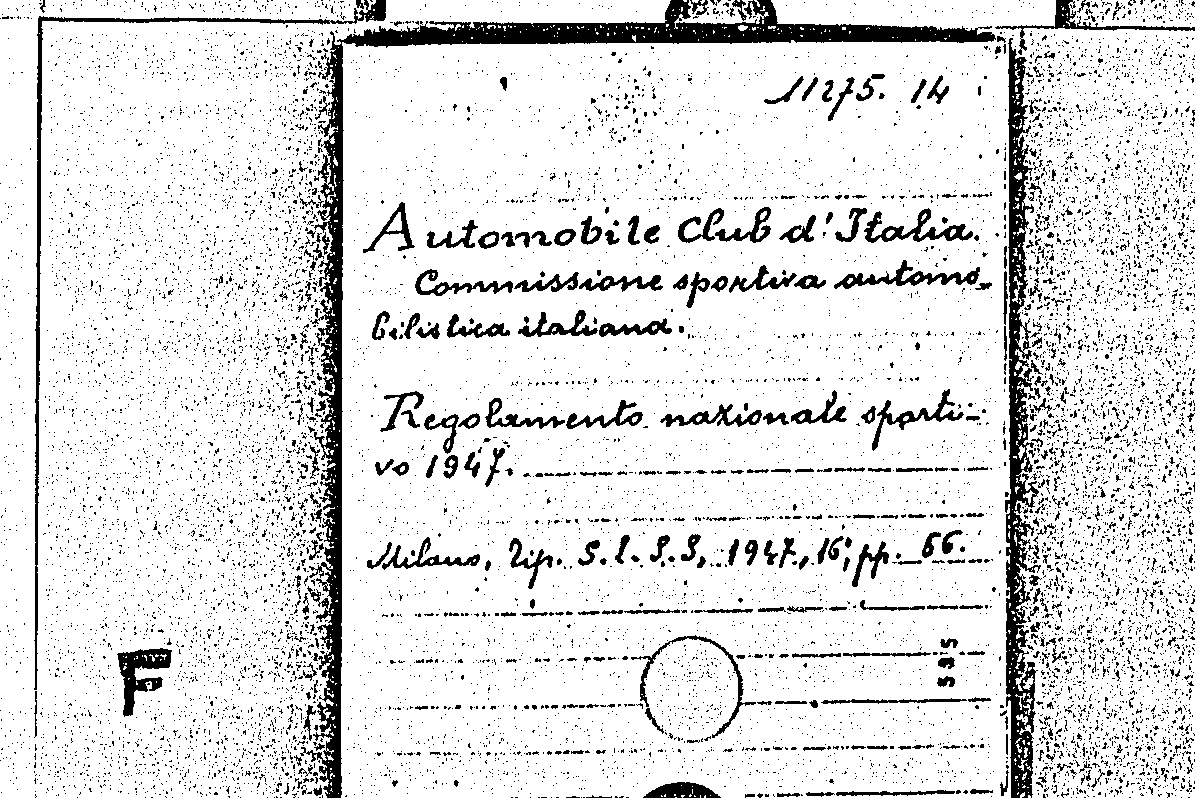 11275. 14
Automobile Club d'Italia.
Commissione sportiva automo-
bilistica italiana.
Regolamento nazionale sporti-
vo 1947.
Milano, Tip. S.E.S.S, 1947, 16°, pp. 66.
535
F